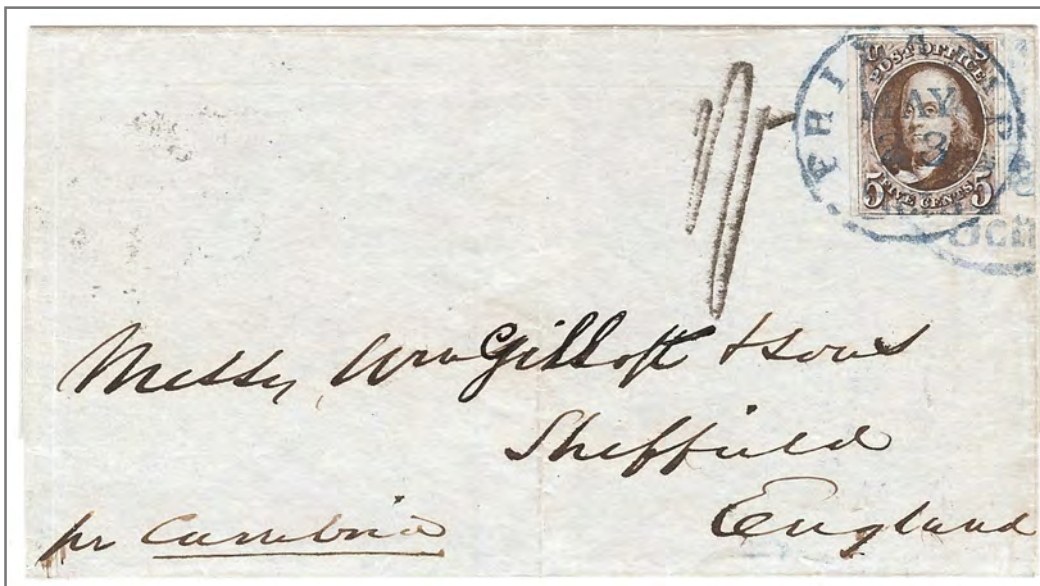 POST OFFICE
MAY
5 FIVE CENTS 5
Messrs, Wm Gillott & Sons
Sheffield
England
pr Cambria